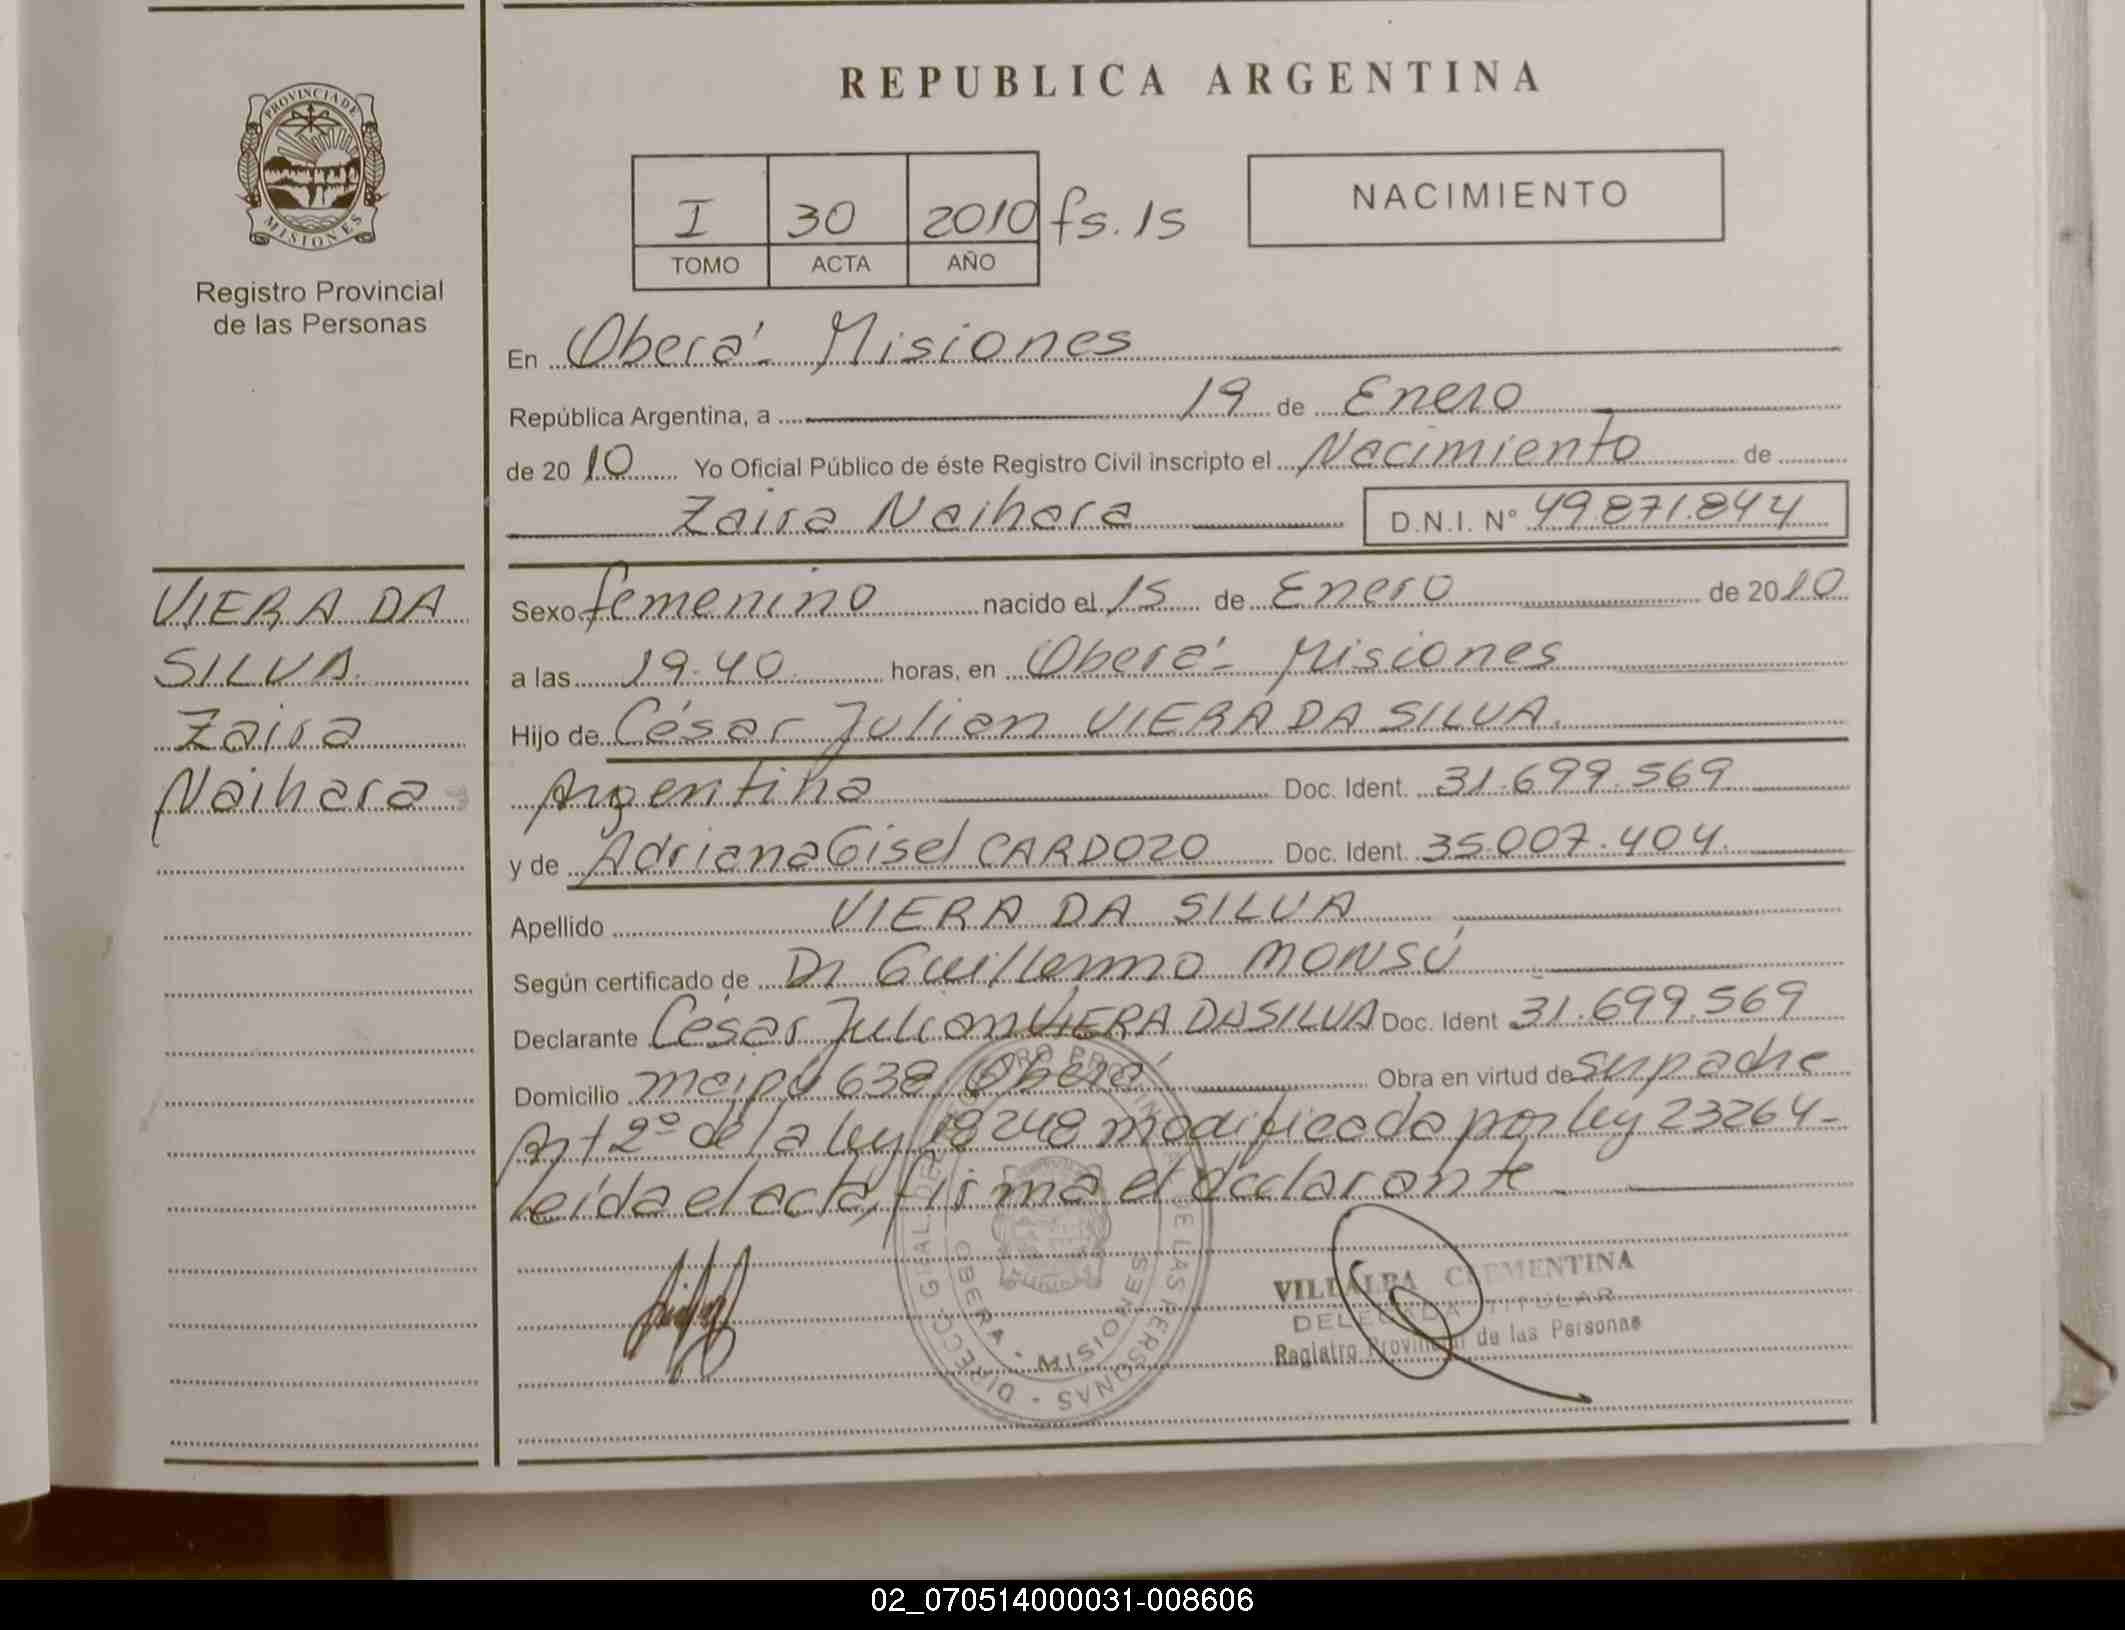 REPUBLICA ARGENTINA
PROVINCIA DE
MISIONES
Registro Provincial
de las Personas
I 30 2010 fs. 15
TOMO ACTA AÑO
NACIMIENTO
En Oberá - Misiones
República Argentina, a 19 de Enero
de 2010 Yo Oficial Público de éste Registro Civil inscripto el Nacimiento de
Zaira Naihara D.N.I. N° 49.871.844
VIERA DA
SILVA.
Zaira
Naihara
Sexo femenino nacido el 15 de Enero de 2010
a las 19.40 horas, en Oberá - Misiones
Hijo de César Julian VIERA DA SILVA.
Argentina Doc. Ident. 31.699.569
y de Adriana Gisel CARDOZO Doc. Ident. 35.007.404.
Apellido VIERA DA SILVA
Según certificado de Dr Guillermo MONSÚ
Declarante César Julian VIERA DA SILVA Doc. Ident 31.699.569
Domicilio maipú 638 Oberá Obra en virtud de su padre
Art 2º de la ley 18248 modificada por ley 23264-
leída el acta, firma el declarante
OBERA - MISIONES
DE LAS PERSONAS - DIRECC. GRAL. DEL
VILLALBA CLEMENTINA
DELEGADA TITULAR
Registro Provincial de las Personas
02_070514000031-008606